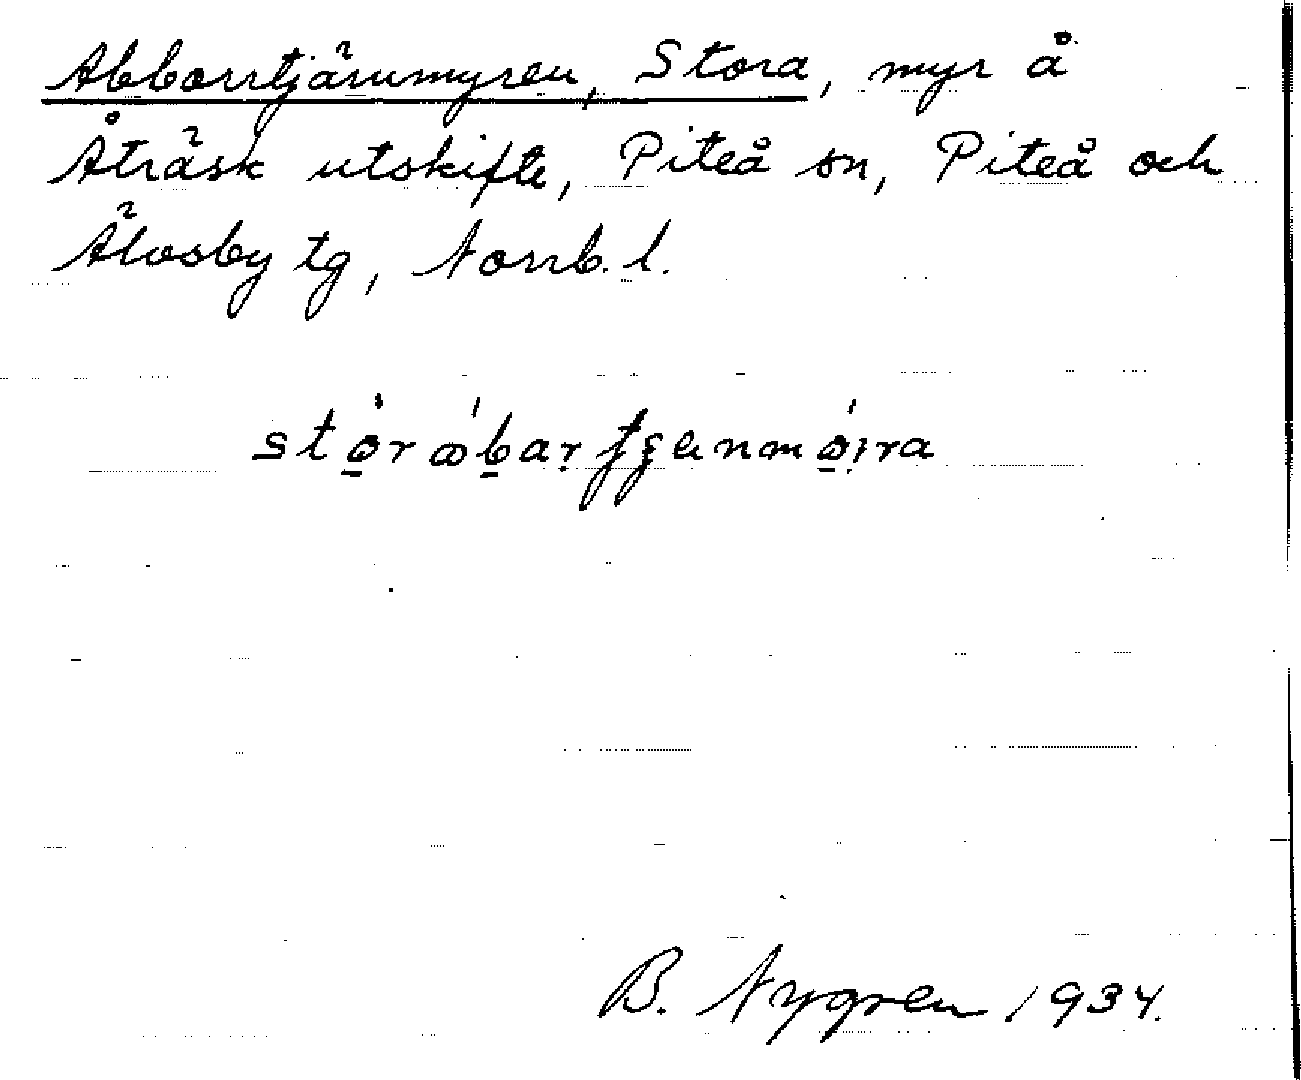 Abborrtjärnmyren, Stora, myr å
Åträsk utskifte, Piteå sn, Piteå och
Älvsby tg, Norrb. l.
B. Nygren 1934.